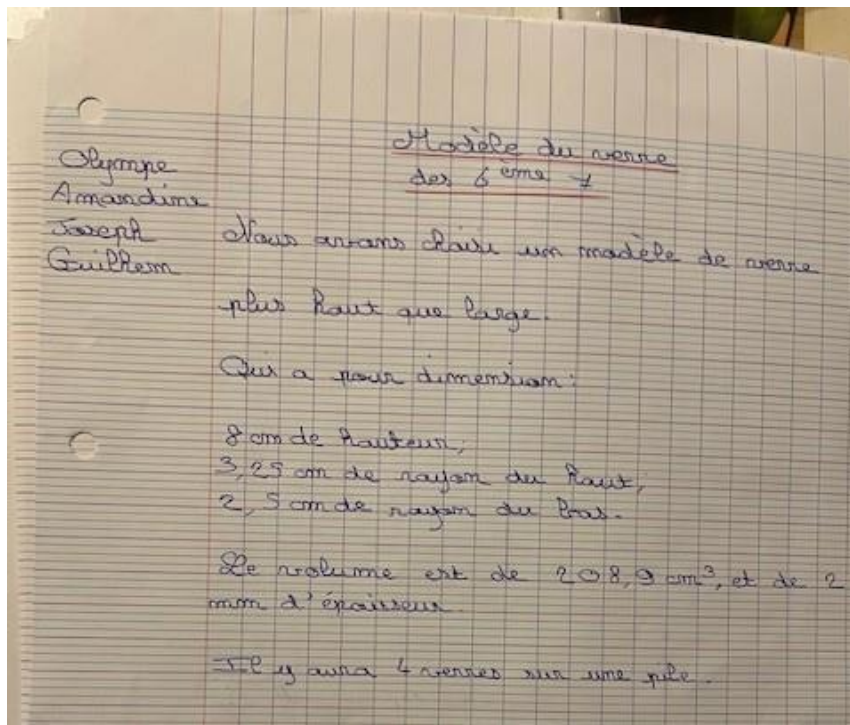 Modèle du verre
des 6ème 7
Olympe
Amandine
Joseph
Guilhem
Nous avons choisi un modèle de verre
plus haut que large.
Qui a pour dimension :
8 cm de hauteur,
3,25 cm de rayon du haut,
2,5 cm de rayon du bas.
Le volume est de 208,9 cm³, et de 2
mm d'épaisseur.
Il y aura 4 verres sur une pile.